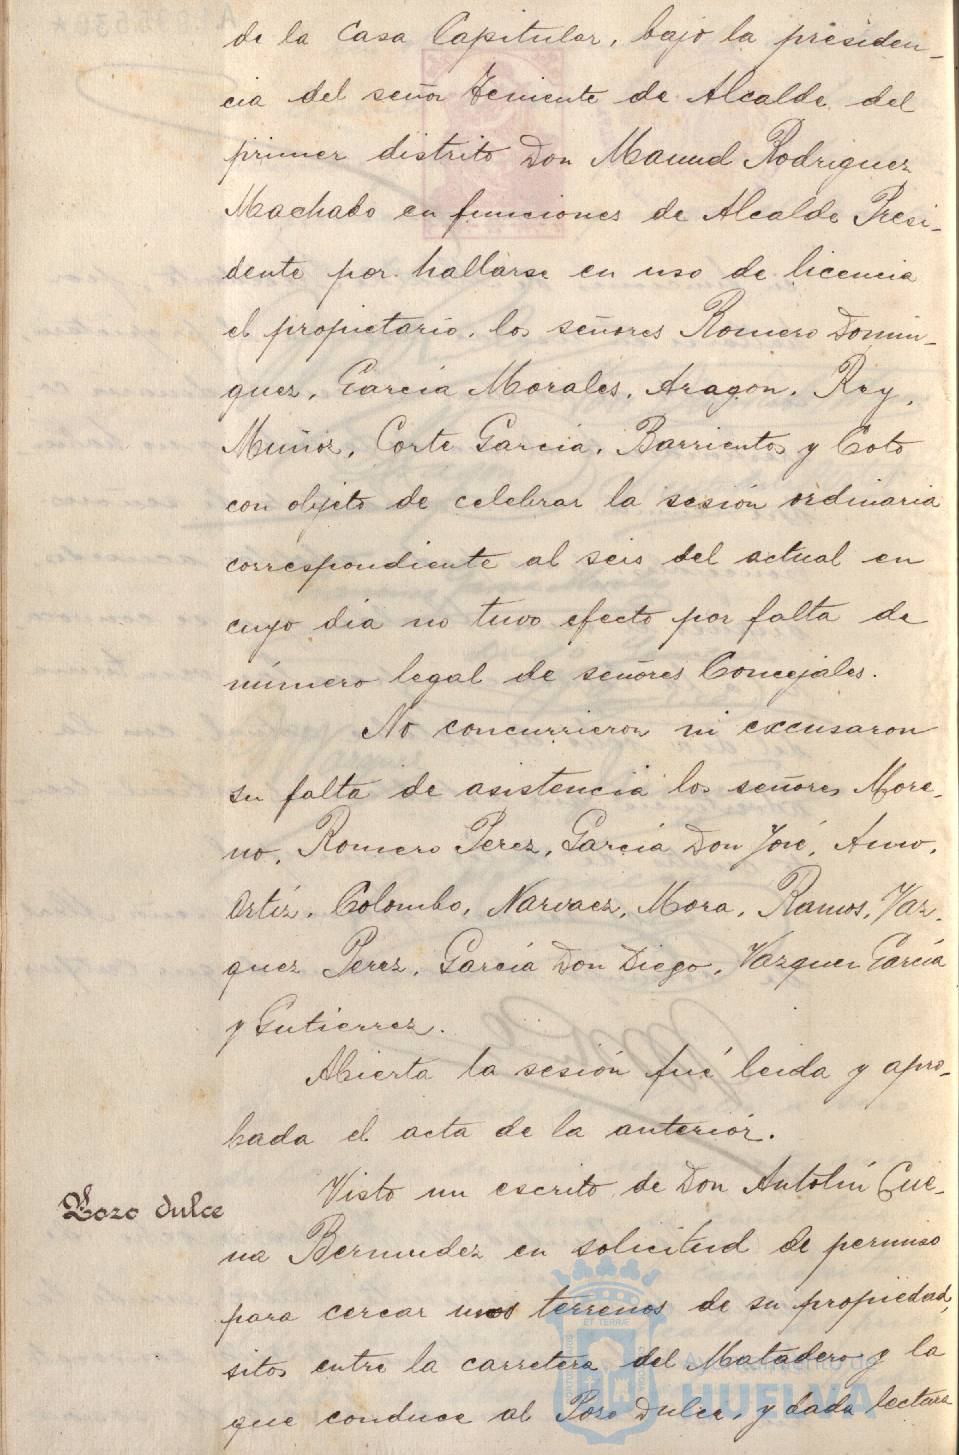 de la Casa Capitular, bajo la presiden-
cia del señor Teniente de Alcalde del
primer distrito Don Manuel Rodriguez
Machado en funciones de Alcalde Presi-
dente por hallarse en uso de licencia
el propietario, los señores Romero Domin-
guez, Garcia Morales, Aragon, Rey,
Muñoz, Corte Garcia, Barrientos y Coto
con objeto de celebrar la sesión ordinaria
correspondiente al seis del actual en
cuyo dia no tuvo efecto por falta de
número legal de señores Concejales.
No concurrieron ni excusaron
su falta de asistencia los señores More-
no, Romero Perez, Garcia Don José,
Ortiz, Colombo, Narvaez, Mora, Ramos, Vaz-
quez Perez, Garcia Don Diego, Vazquez Garcia
y Gutierrez.
Abierta la sesión fué leida y apro-
bada el acta de la anterior.
Pozo dulce
Visto un escrito de Don Antolín Cue-
na Bermudez en solicitud de permiso
para cercar unos terrenos de su propiedad,
sitos entre la carretera del Matadero y la
que conduce al Pozo dulce, y dada lectura
Ayuntamiento de
HUELVA